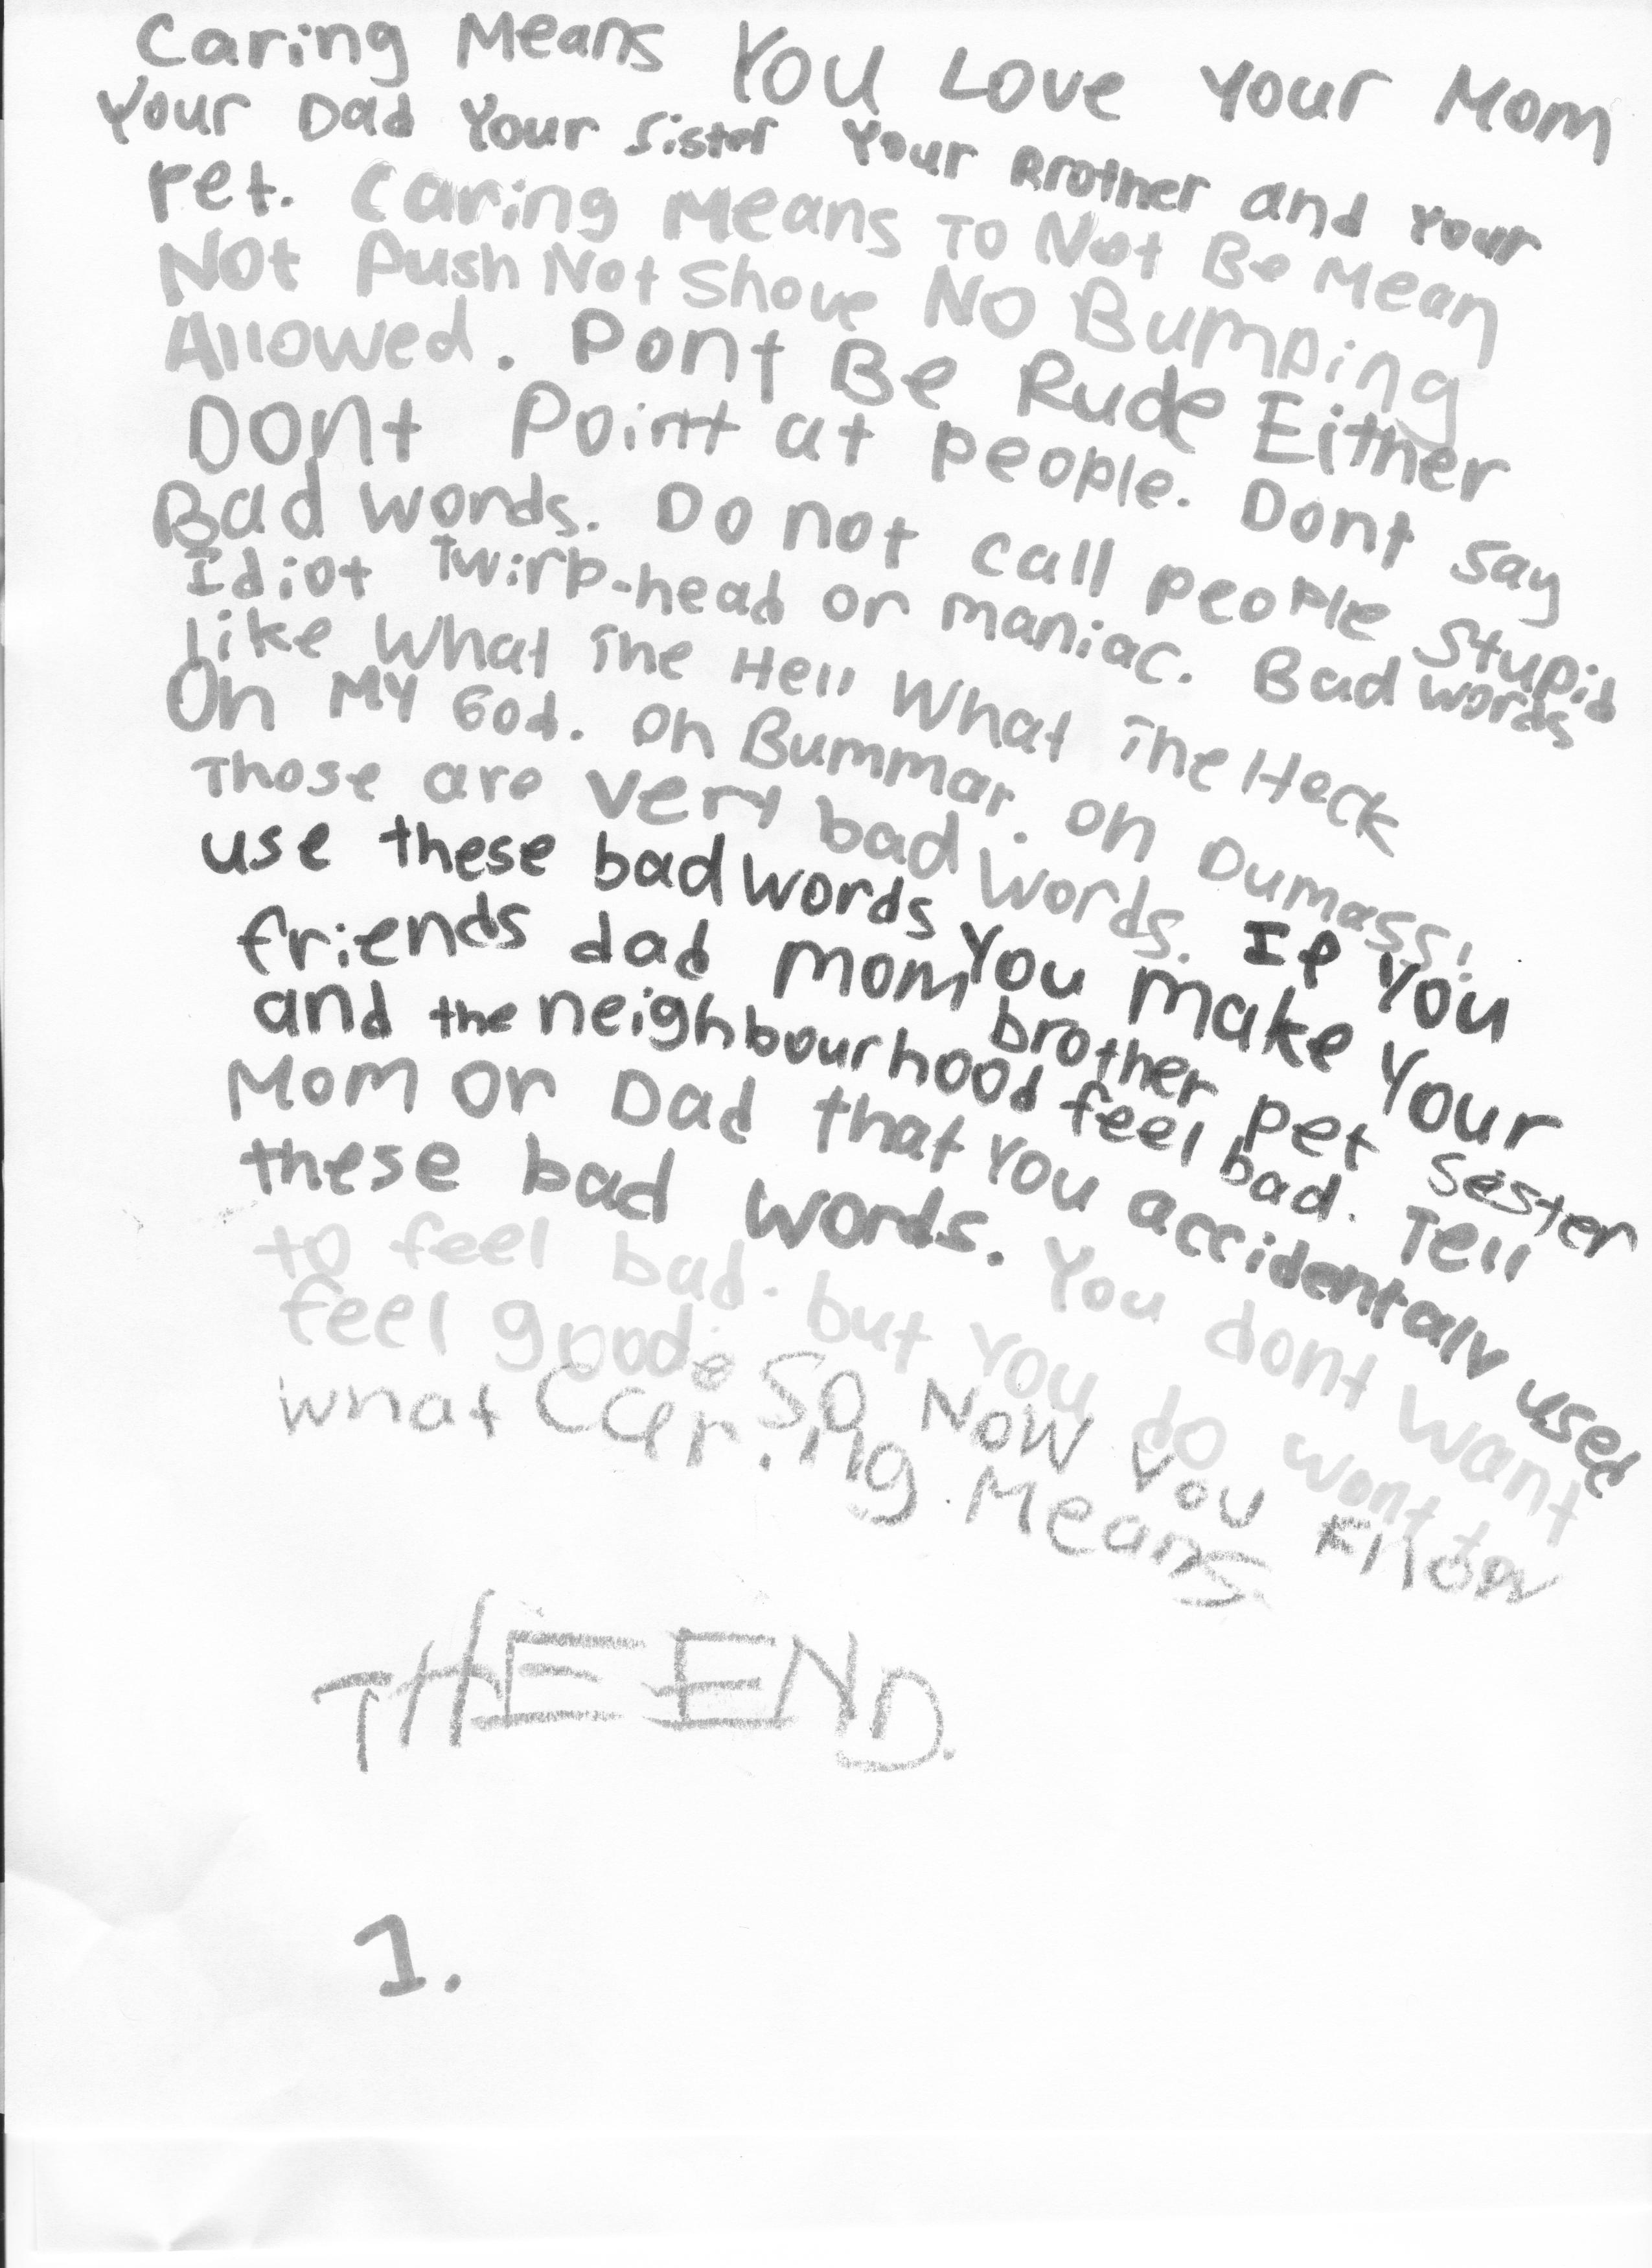 Caring Means You Love Your Mom
Your Dad Your Sister Your Brother and Your
Pet. Caring Means To Not Be Mean
Not Push Not Shove No Bumping
Allowed. Dont Be Rude Either
Dont Point at people. Dont say
Bad words. Do not call people Stupid
Idiot Twirp-head or maniac. Bad words
like What The Hell What The Heck
Oh My God. Oh Bummar. Oh Dumass!
Those are very bad words. If You
use these bad words You make Your
friends dad mom brother pet sester
and the neighbourhood feel bad. Tell
Mom or Dad that You accidentaly used
these bad words. You dont want
to feel bad. but You do wont to
feel good. So Now You Know
what Caring Means
THE END.
1.